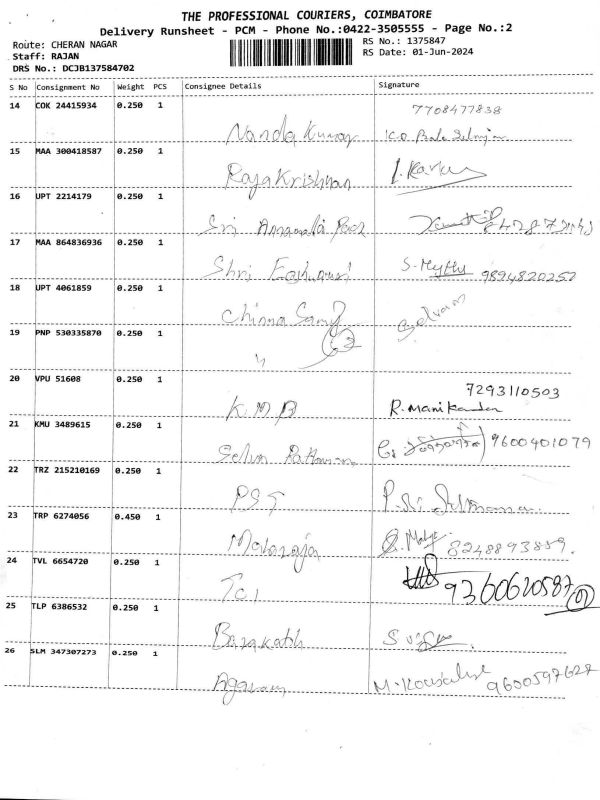 THE PROFESSIONAL COURIERS, COIMBATORE
Delivery Runsheet - PCM - Phone No.:0422-3505555 - Page No.:2
Route: CHERAN NAGAR
RS No.: 1375847
Staff: RAJAN
RS Date: 01-Jun-2024
DRS No.: DCJB137584702
S No Consignment No Weight PCS Consignee Details Signature
14 COK 24415934 0.250 1
7708477838
Nanda Kumar K.O. Bala
15 MAA 300418587 0.250 1
Raja Krishnan
16 UPT 2214179 0.250 1
Sri Annamalai
17 MAA 864836936 0.250 1
Shri 9894820252
18 UPT 4061859 0.250 1
Chinna Samy Selvam
19 PNP 530335870 0.250 1
〃
20 VPU 51608 0.250 1
7293110503
K.M.B R. Manikandan
21 KMU 3489615 0.250 1
Selva 9600401079
22 TRZ 215210169 0.250 1
PST P. Sri
23 TRP 6274056 0.450 1
Maharaja 8248893859.
24 TVL 6654720 0.250 1
TCI 9360620587
25 TLP 6386532 0.250 1
Barakath
26 SLM 347307273 0.250 1
Agaram M. Kousalya 9600597627